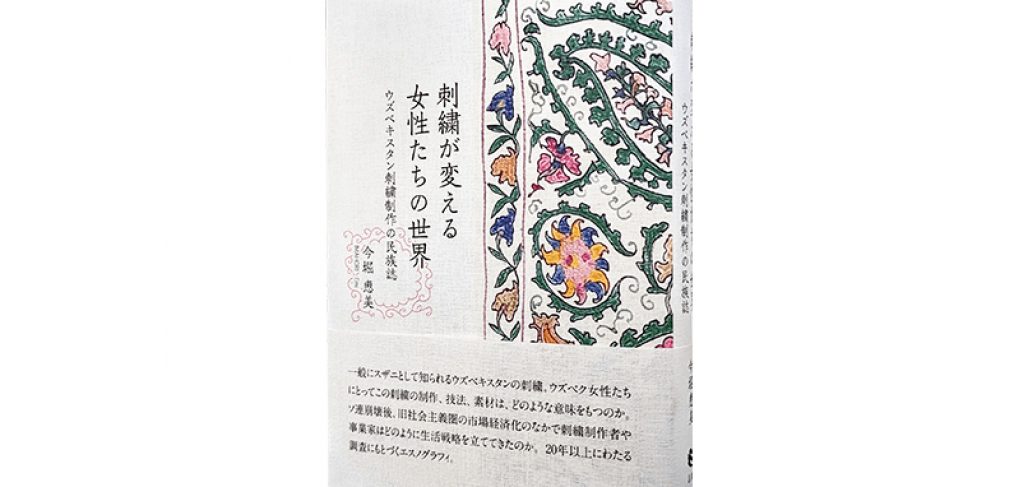 刺繍が変える
女性たちの世界
ウズベキスタン刺繍制作の民族誌
今堀 恵美
一般にスザニとして知られるウズベキスタンの刺繍。ウズベク女性たち
にとってこの刺繍の制作、技法、素材は、どのような意味をもつのか。
ソ連崩壊後、旧社会主義圏の市場経済化のなかで刺繍制作者や
事業家はどのように生活戦略を立ててきたのか。20年以上にわたる
調査にもとづくエスノグラフィ。
ウズベキスタン刺繍制作の民族誌